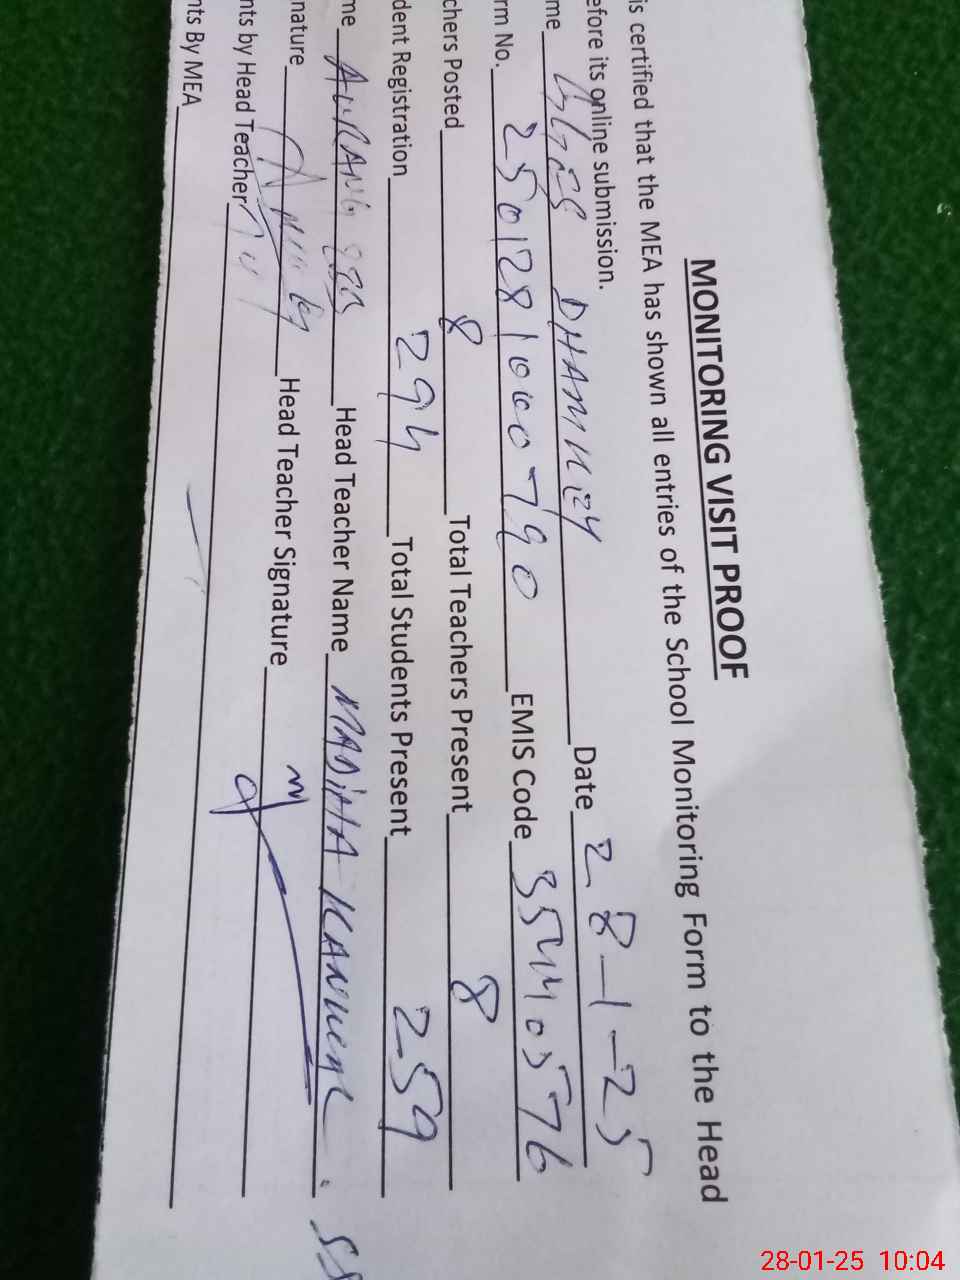 MONITORING VISIT PROOF
is certified that the MEA has shown all entries of the School Monitoring Form to the Head
efore its online submission.
me GGES Date 28-1-25
rm No. 2501281000790 EMIS Code 35440576
chers Posted 8 Total Teachers Present 8
dent Registration 294 Total Students Present 259
me Head Teacher Name MADIHA
nature Head Teacher Signature
nts by Head Teacher
nts By MEA
28-01-25 10:04